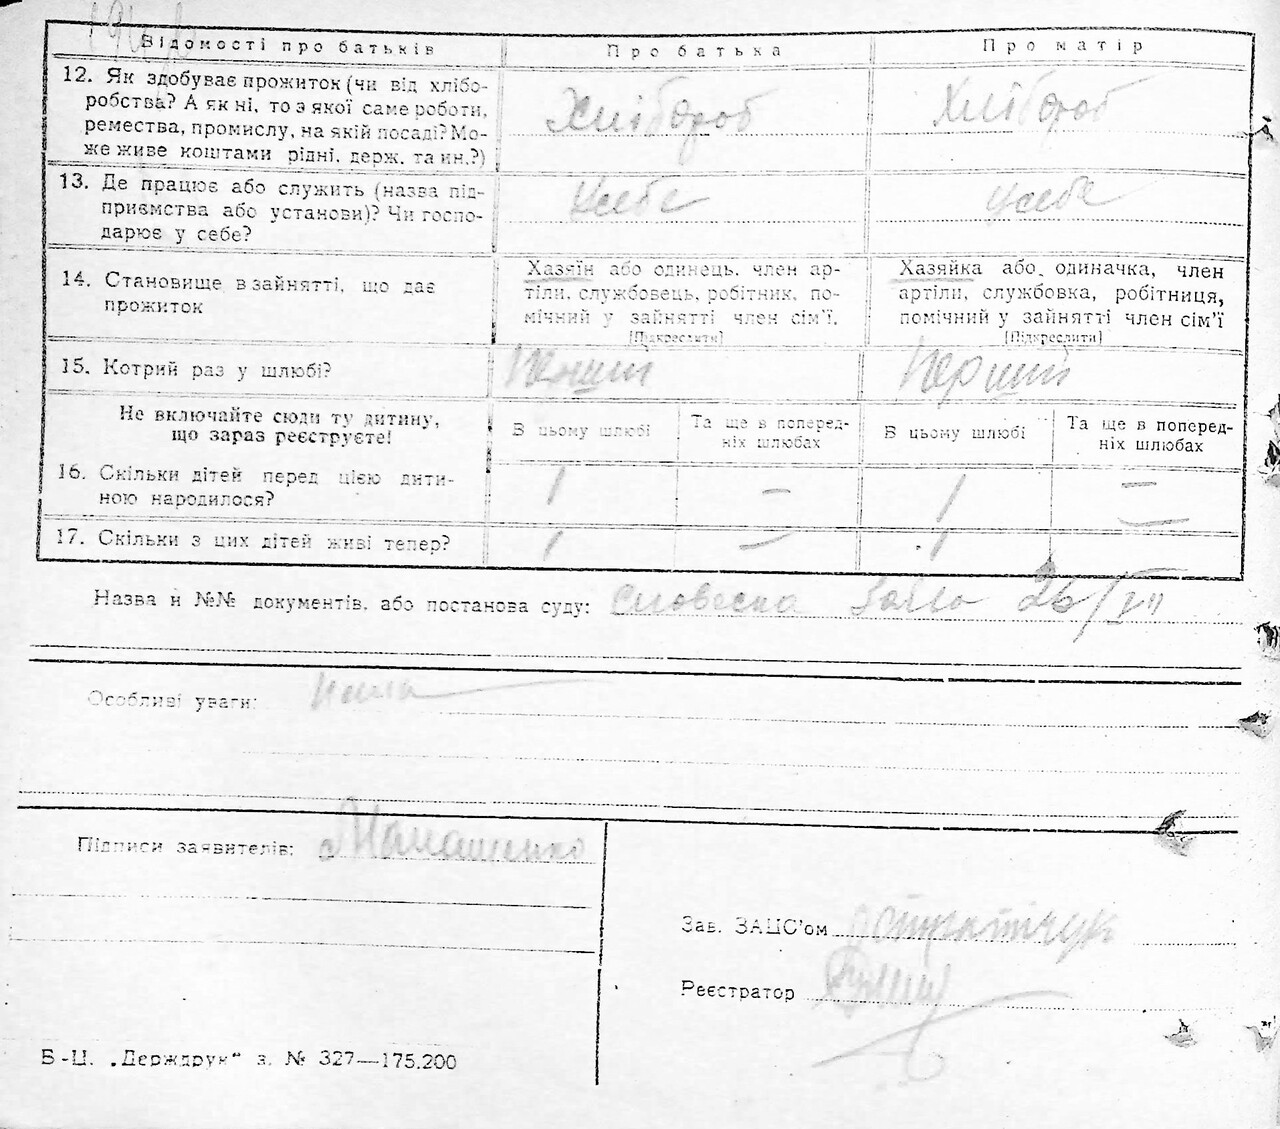 Відомості про батьків Про батька Про матір
12. Як здобуває прожиток (чи від хлібо-
робства? А як ні, то з якої саме роботи,
ремества, промислу, на якій посаді? Мо-
же живе коштами рідні, держ. та ин.?)
Хлібороб Хлібороб
13. Де працює або служить (назва під-
приємства або установи)? Чи госпо-
дарює у себе?
У себе у себе
14. Становище в зайнятті, що дає
прожиток
Хазяїн або одинець, член ар-
тіли, службовець, робітник, по-
мічний у зайнятті член сім'ї.
[Підкреслити]
Хазяйка або одиначка, член
артіли, службовка, робітниця,
помічний у зайнятті член сім'ї
[Підкреслити]
15. Котрий раз у шлюбі? Перший
Не включайте сюди ту дитину,
що зараз реєструєте!
В цьому шлюбі Та ще в поперед-
ніх шлюбах В цьому шлюбі Та ще в поперед-
ніх шлюбах
16. Скільки дітей перед цією дити-
ною народилося?
1 — 1 —
17. Скільки з цих дітей живі тепер? 1 — 1 —
Назва й №№ документів, або постанова суду: Словесна 26/VII
Особливі уваги: Нема
Підписи заявителів: Манашенко
Зав. ЗАЦС'ом
Реєстратор
Б-Ц. „Держдрук“ з. № 327—175.200